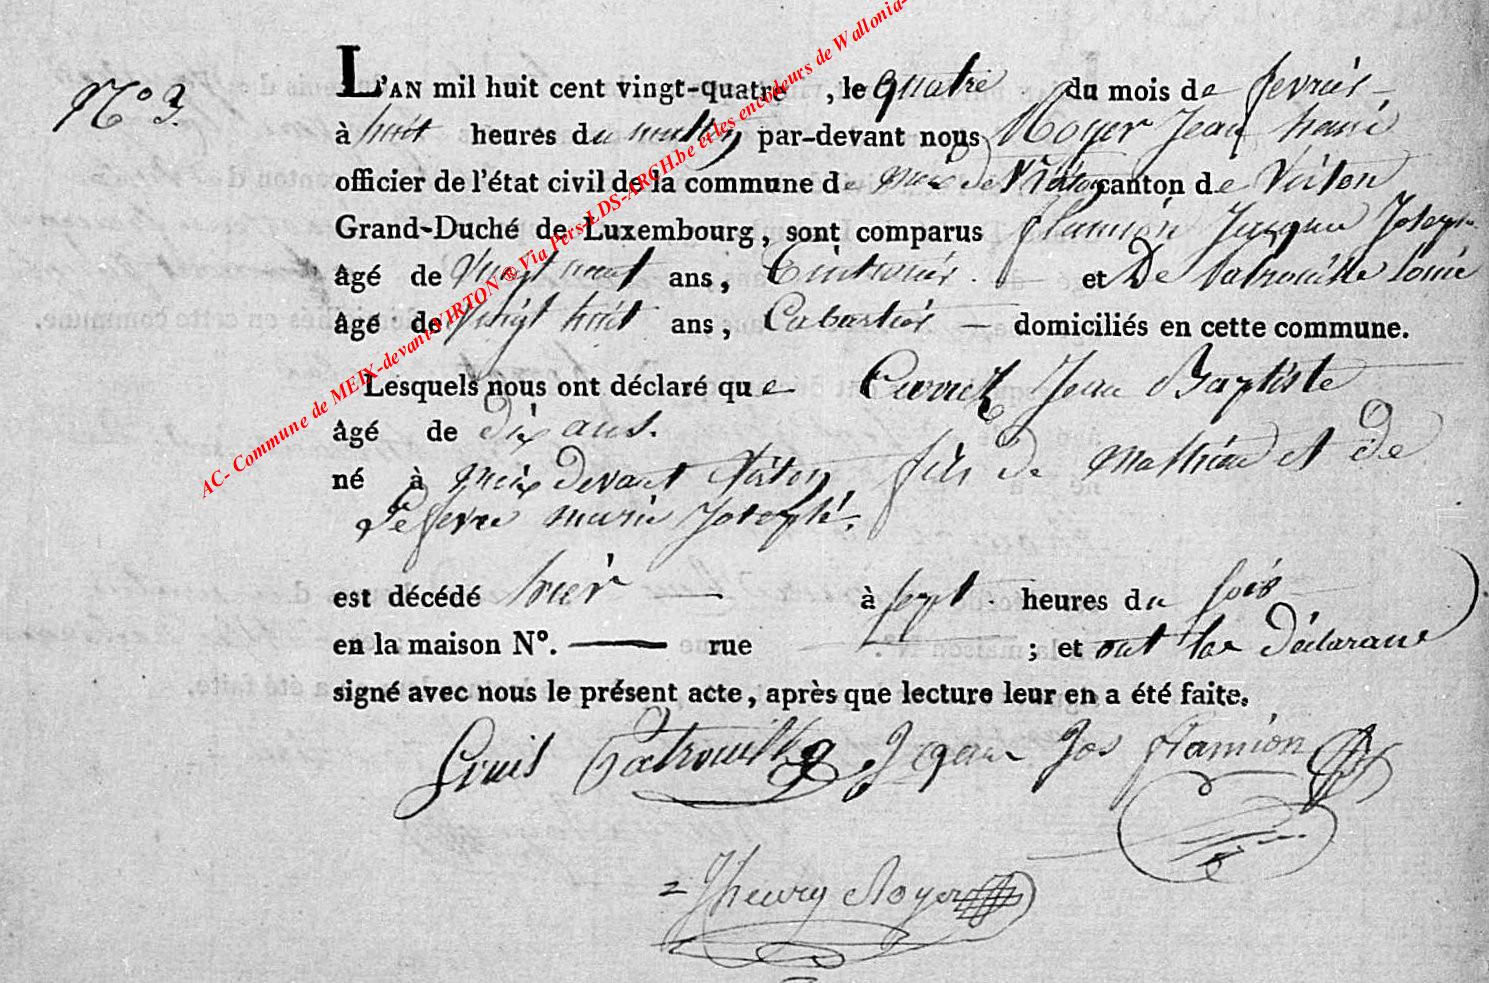 N° 3.
L'AN mil huit cent vingt-quatre, le quatre du mois de fevrier
à huit heures du matin par-devant nous Royer Jean henri
officier de l'état civil de la commune de meix devt Virton canton de Virton
Grand-Duché de Luxembourg, sont comparus flamion Jacque Joseph
âgé de Vingt neuf ans, et De Patrouille Louis
âgé de vingt huit ans, Cabartier — domiciliés en cette commune.
Lesquels nous ont déclaré que Jean Baptiste
âgé de dix ans.
né à meix devant Virton fils de Mathieu et de
Lefevre marie Josephe.
est décédé hier — à sept heures du soir
en la maison N°. — rue — ; et ont les Déclarans
signé avec nous le présent acte, après que lecture leur en a été faite.
Louis Patrouille Jos flamion
Jhenry Royer
AC- Commune de MEIX-devant-VIRTON ® Via Pers-LDS-ARCH.be et les encodeurs de Wallonia-